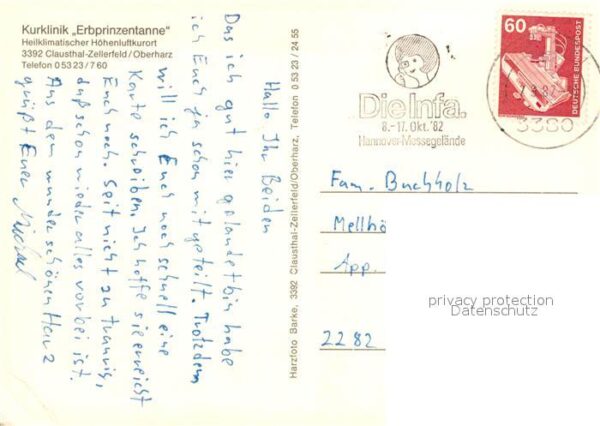 Kurklinik „Erbprinzentanne“
Heilklimatischer Höhenluftkurort
3392 Clausthal-Zellerfeld/Oberharz
Telefon 0 53 23 / 7 60
Hallo Ihr Beiden
Das ich gut hier gelandet bin habe
ich Euch ja schon mitgeteilt. Trotzdem
will ich Euch noch schnell eine
Karte schreiben. Ich hoffe sie erreicht
Euch noch. Seit nicht zu traurig,
daß schon wieder alles vorbei ist.
Aus dem wunderschönen Harz
grüßt Euer Michael
Harzfoto Barke, 3392 Clausthal-Zellerfeld/Oberharz, Telefon 0 53 23 / 24 55
Die Infa.
8.-17. Okt. '82
Hannover-Messegelände
60
DEUTSCHE BUNDESPOST
82
3380
Fam. Buchholz
Mellhö
App.
2282
privacy protection
Datenschutz